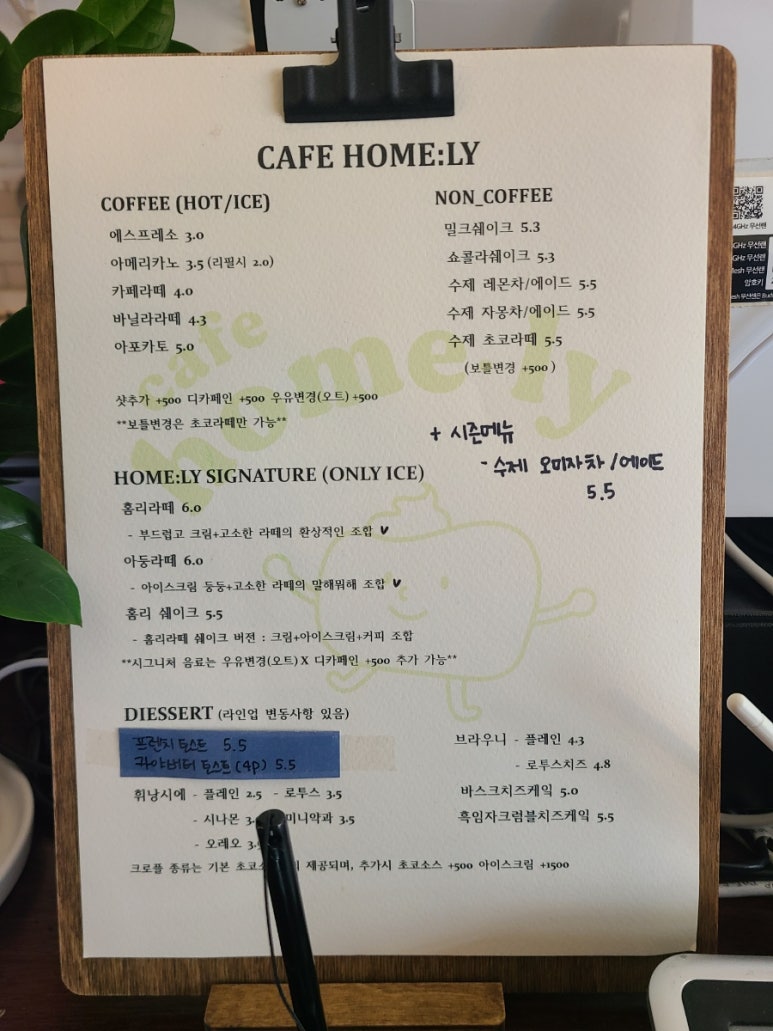 CAFE HOME:LY
COFFEE (HOT/ICE)
에스프레소 3.0
아메리카노 3.5 (리필시 2.0)
카페라떼 4.0
바닐라라떼 4.3
아포카토 5.0
샷추가 +500 디카페인 +500 우유변경(오트) +500
**보틀변경은 초코라떼만 가능**
NON_COFFEE
밀크쉐이크 5.3
쇼콜라쉐이크 5.3
수제 레몬차/에이드 5.5
수제 자몽차/에이드 5.5
수제 초코라떼 5.5
(보틀변경 +500 )
+ 시즌메뉴
- 수제 오미자차 / 에이드
5.5
cafe
home:ly
HOME:LY SIGNATURE (ONLY ICE)
홈리라떼 6.0
- 부드럽고 크림+고소한 라떼의 환상적인 조합 ♥
아둥라떼 6.0
- 아이스크림 둥둥+고소한 라떼의 말해뭐해 조합 ♥
홈리 쉐이크 5.5
- 홈리라떼 쉐이크 버전 : 크림+아이스크림+커피 조합
**시그니쳐 음료는 우유변경(오트) X 디카페인 +500 추가 가능**
DIESSERT (라인업 변동사항 있음)
프렌치 토스트 5.5
카야버터 토스트 (4p) 5.5
휘낭시에 - 플레인 2.5 - 로투스 3.5
- 시나몬 미니약과 3.5
- 오레오
브라우니 - 플레인 4.3
- 로투스치즈 4.8
바스크치즈케익 5.0
흑임자크럼블치즈케익 5.5
크로플 종류는 기본 제공되며, 추가시 초코소스 +500 아이스크림 +1500
4GHz 무선랜
GHz 무선랜
GHz 무선랜
Mesh 무선랜
암호키